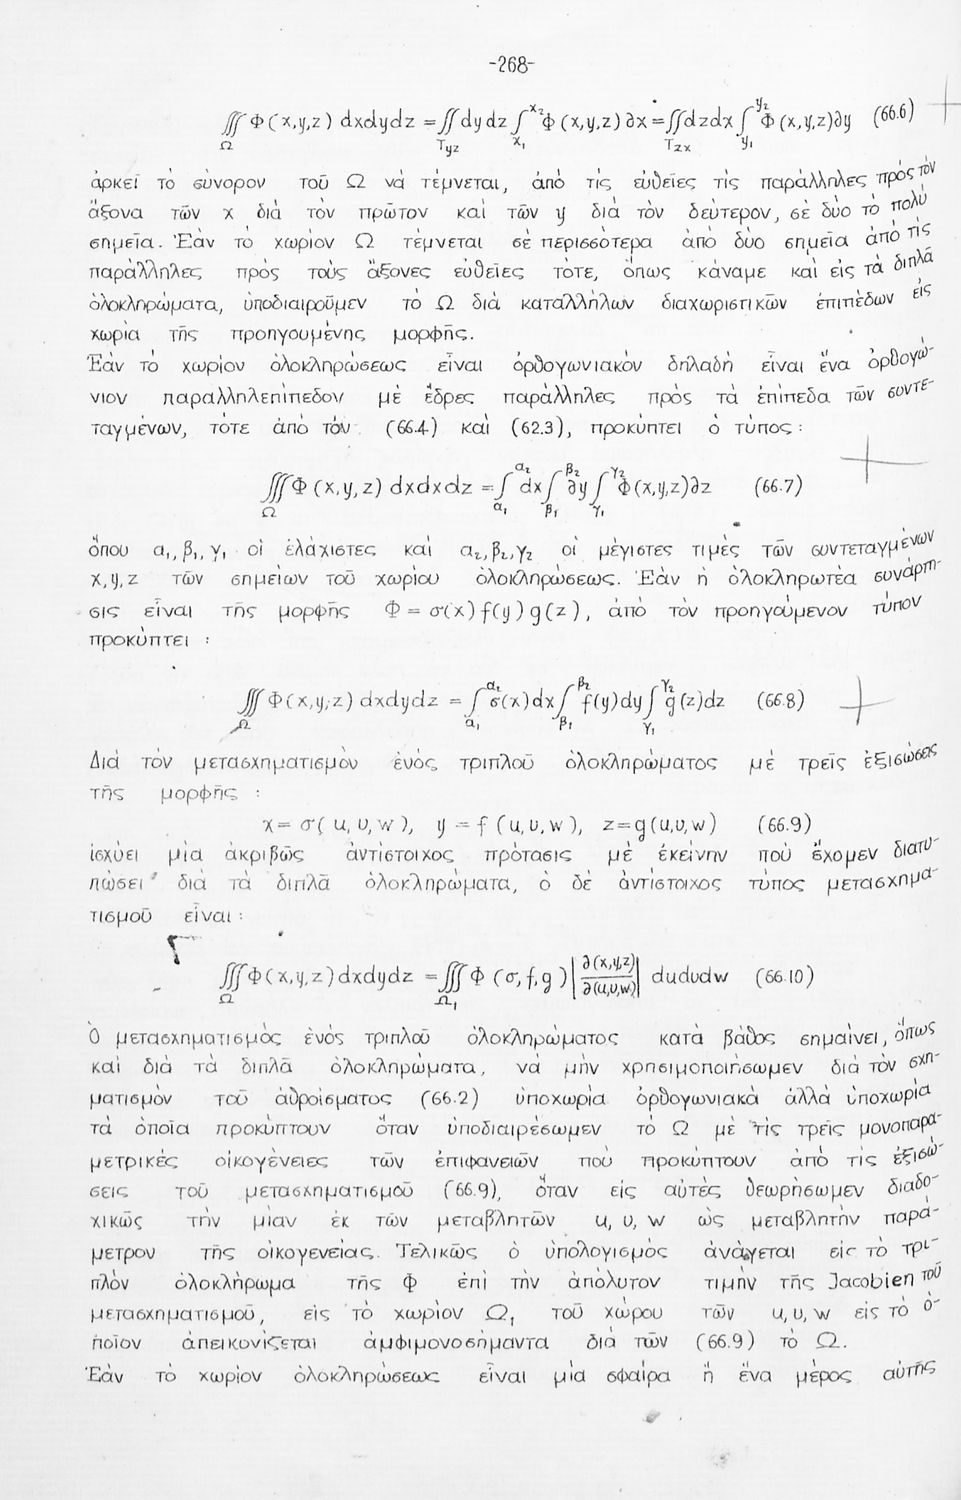 -268-
∭Φ(x,y,z) dxdydz = ∬dydz ∫Φ(x,y,z)∂x = ∬dzdx ∫Φ(x,y,z)∂y (66.6)
Ω Tyz x₁ x₂ Tzx y₁ y₂
ἀρκεῖ τὸ σύνορον τοῦ Ω νά τέμνεται, ἀπό τίς εὐθεῖες τίς παράλληλες πρός τόν
ἄξονα τῶν x διά τόν πρῶτον καί τῶν y διά τόν δεύτερον, σέ δύο τό πολύ
σημεῖα. Ἐάν τό χωρίον Ω τέμνεται σέ περισσότερα ἀπό δύο σημεῖα ἀπό τίς
παράλληλες πρός τούς ἄξονες εὐθεῖες τότε, ὅπως κάναμε καί εἰς τά διπλᾶ
ὁλοκληρώματα, ὑποδιαιροῦμεν τό Ω διά καταλλήλων διαχωριστικῶν ἐπιπέδων εἰς
χωρία τῆς προηγουμένης μορφῆς.
Ἐάν τό χωρίον ὁλοκληρώσεως εἶναι ὀρθογωνιακόν δηλαδή εἶναι ἕνα ὀρθογώ-
νιον παραλληλεπίπεδον μέ ἕδρες παράλληλες πρός τά ἐπίπεδα τῶν συντε-
ταγμένων, τότε ἀπό τόν (66.4) καί (62.3), προκύπτει ὁ τύπος:
∭Φ(x,y,z) dxdxdz = ∫dx∫∂y∫Φ(x,y,z)∂z (66.7)
Ω α₁ α₂ β₁ β₂ γ₁ γ₂
ὅπου α₁, β₁, γ₁ οἱ ἐλάχιστες καί α₂, β₂, γ₂ οἱ μέγιστες τιμές τῶν συντεταγμένων
x,y,z τῶν σημείων τοῦ χωρίου ὁλοκληρώσεως. Ἐάν ἡ ὁλοκληρωτέα συνάρτη-
σις εἶναι τῆς μορφῆς Φ = σ(x) f(y) g(z), ἀπό τόν προηγούμενον τύπον
προκύπτει :
∭Φ(x,y,z) dxdydz = ∫σ(x)dx∫f(y)dy∫g(z)dz (66.8)
Ω α₁ α₂ β₁ β₂ γ₁ γ₂
Διά τόν μετασχηματισμόν ἑνός τριπλοῦ ὁλοκληρώματος μέ τρεῖς ἐξισώσεις
τῆς μορφῆς :
x = σ(u,υ,w), y = f(u,υ,w), z = g(u,υ,w) (66.9)
ἰσχύει μία ἀκριβῶς ἀντίστοιχος πρότασις μέ ἐκείνην πού ἔχομεν διατυ-
πώσει διά τά διπλᾶ ὁλοκληρώματα, ὁ δέ ἀντίστοιχος τύπος μετασχημα-
τισμοῦ εἶναι:
∭Φ(x,y,z)dxdydz = ∭Φ(σ,f,g)|∂(x,y,z)/∂(u,υ,w)| dudυdw (66.10)
Ω Ω₁
Ὁ μετασχηματισμός ἑνός τριπλοῦ ὁλοκληρώματος κατά βάθος σημαίνει, ὅπως
καί διά τά διπλᾶ ὁλοκληρώματα, νά μήν χρησιμοποιήσωμεν διά τόν σχη-
ματισμόν τοῦ ἀθροίσματος (66.2) ὑποχωρία ὀρθογωνιακά ἀλλά ὑποχωρία
τά ὁποῖα προκύπτουν ὅταν ὑποδιαιρέσωμεν τό Ω μέ τίς τρεῖς μονοπαρα-
μετρικές οἰκογένειες τῶν ἐπιφανειῶν πού προκύπτουν ἀπό τίς ἐξισώ-
σεις τοῦ μετασχηματισμοῦ (66.9), ὅταν εἰς αὐτές θεωρήσωμεν διαδο-
χικῶς τήν μίαν ἐκ τῶν μεταβλητῶν u, υ, w ὡς μεταβλητήν παρά-
μετρον τῆς οἰκογενείας. Τελικῶς ὁ ὑπολογισμός ἀνάγεται εἰς τό τρι-
πλόν ὁλοκλήρωμα τῆς Φ ἐπί τήν ἀπόλυτον τιμήν τῆς Jacobien τοῦ
μετασχηματισμοῦ, εἰς τό χωρίον Ω₁ τοῦ χώρου τῶν u,υ,w εἰς τό ὁ-
ποῖον ἀπεικονίζεται ἀμφιμονοσήμαντα διά τῶν (66.9) τό Ω.
Ἐάν τό χωρίον ὁλοκληρώσεως εἶναι μία σφαῖρα ἤ ἕνα μέρος αὐτῆς